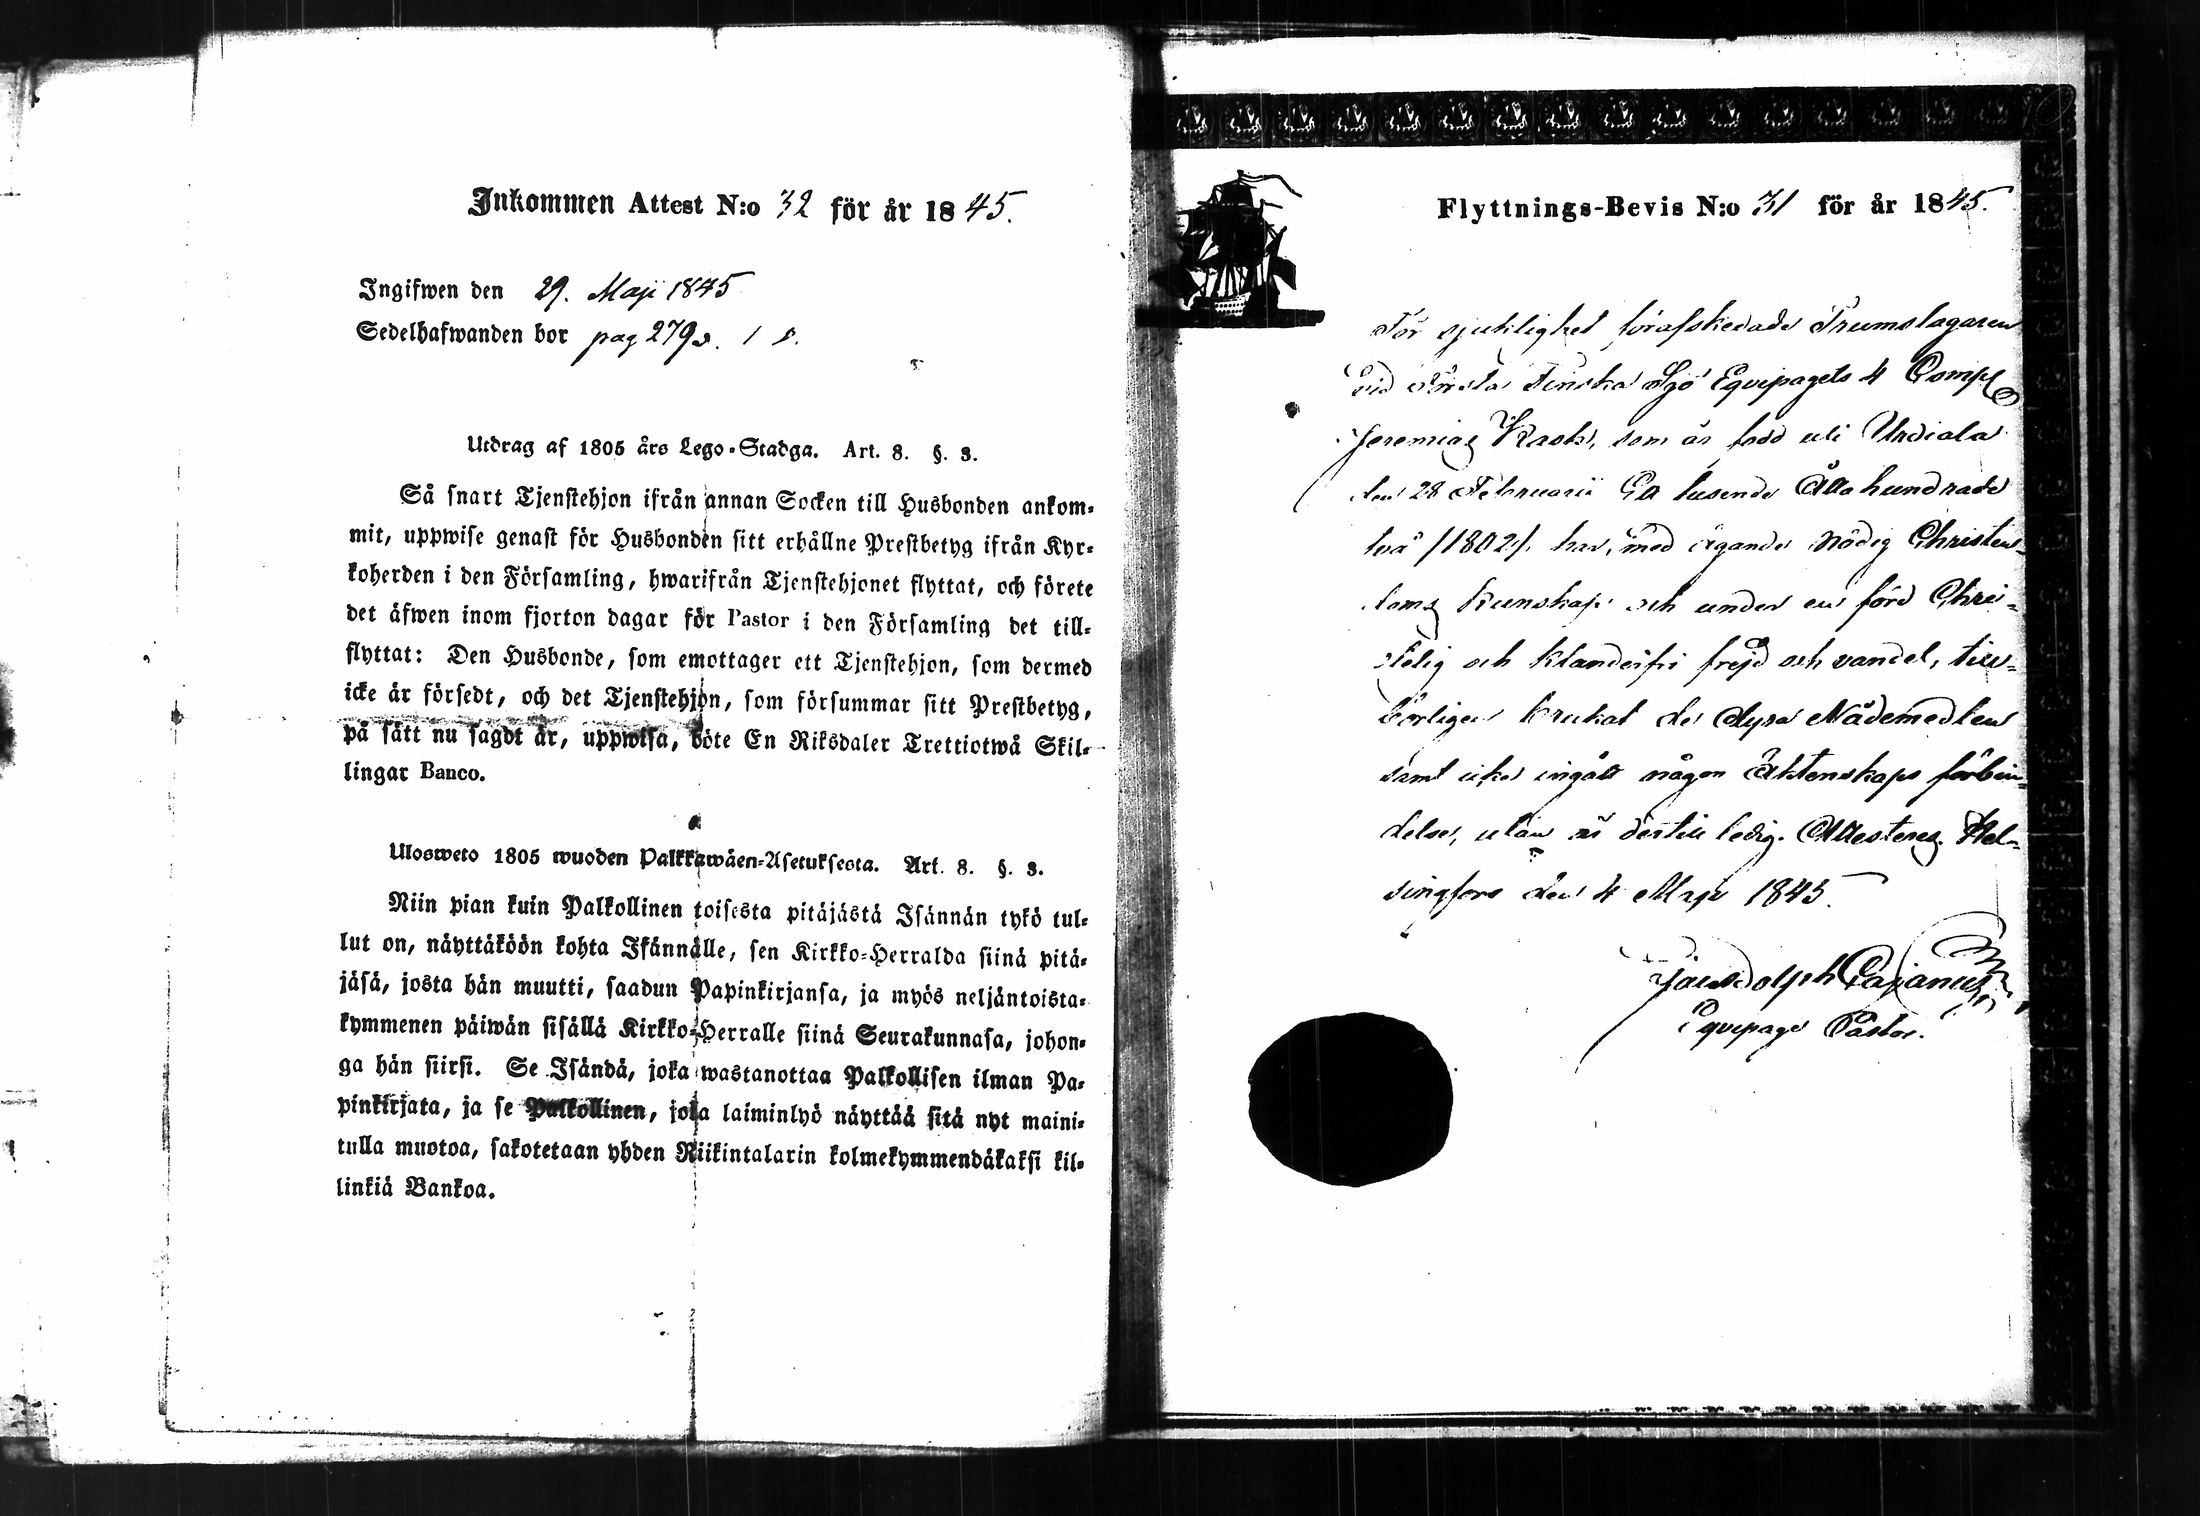 Inkommen Attest N:o 32 för år 1845.
Ingifwen den 29. Maji 1845
Sedelhafwanden bor pag 279
Utdrag af 1805 års Lego-Stadga. Art. 8. §. 3.
Så snart Tjenstehjon ifrån annan Socken till Husbonden ankom-
mit, uppwise genast för Husbonden sitt erhållne Prestbetyg ifrån Kyr-
koherden i den Församling, hwarifrån Tjenstehjonet flyttat, och förete
det äfwen inom fjorton dagar för Pastor i den Församling det till-
flyttat: Den Husbonde, som emottager ett Tjenstehjon, som dermed
icke är försedt, och det Tjenstehjon, som försummar sitt Prestbetyg,
på sätt nu sagdt är, uppwisa, böte En Riksdaler Trettiotwå Skil-
lingar Banco.
Ulosweto 1805 wuoden Palkkawäen-Asetuksesta. Art. 8. §. 3.
Niin pian kuin Palkollinen toisesta pitäjästä Isännän tykö tul-
lut on, näyttäköön kohta Isännälle, sen Kirkko-Herralda siinä pitä-
jäsä, josta hän muutti, saadun Papinkirjansa, ja myös neljäntoista-
kymmenen päiwän sisällä Kirkko-Herralle siinä Seurakunnasa, johon-
ga hän siirsi. Se Isändä, joka wastanottaa Palkollisen ilman Pa-
pinkirjata, ja se Palkollinen, joka laiminlyö näyttää sitä nyt maini-
tulla muotoa, sakotetaan yhden Riikintalarin kolmekymmendäkaksi kil-
linkiä Bankoa.
Flyttnings-Bevis N:o 31 för år 1845.
För sjuklighet förafskedade Trumslagaren
vid Första Finska Sjö Equipagets 4 Comp
Jeremias Rask, som är född uti Urdiala
den 28 Februarii Ett tusende Åtta hundrade
två /1802/, har, med ägande nödig Christen-
doms kunskap och under en förd Chri-
stelig och klanderfri frejd och vandel, till-
börligen brukat de dyra Nådemedlen
samt icke ingått någon Äktenskaps förbin-
delse, utan är dertill ledig. Attesteras. Hel-
singfors den 4 Maji 1845.
Cajanus
Equipage Pastor.